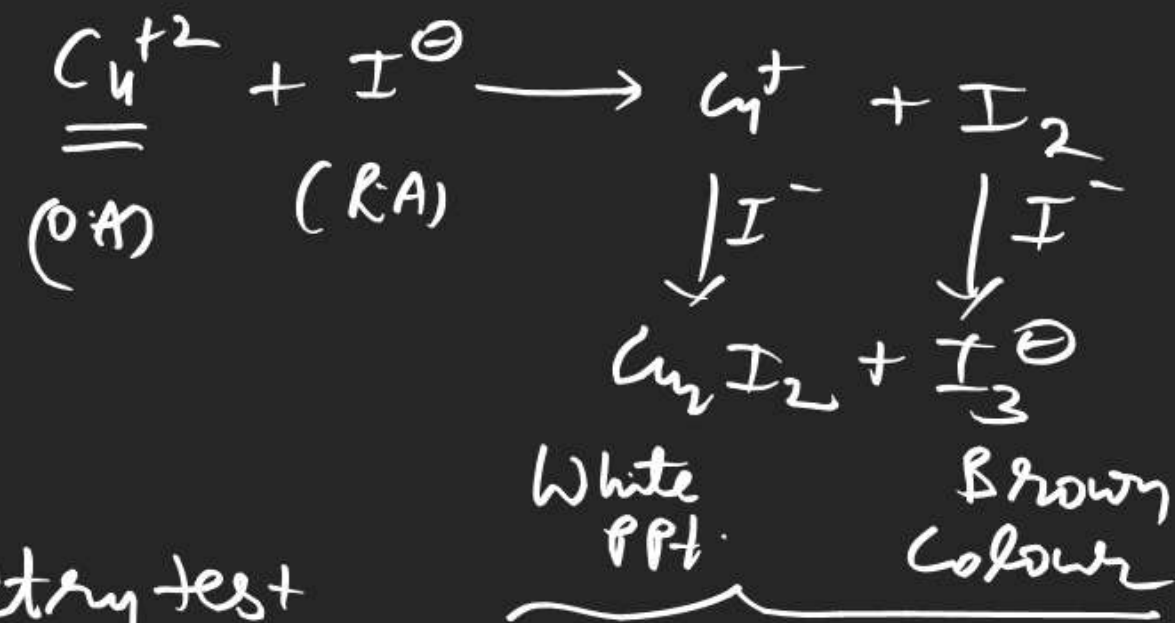 Cu⁺² + I⊖ ⟶ Cu⁺ + I₂
(O.A) (R.A) ↓I⁻ ↓I⁻
Cu₂I₂ + I₃⊖
White Brown
PPt. Colour
try test